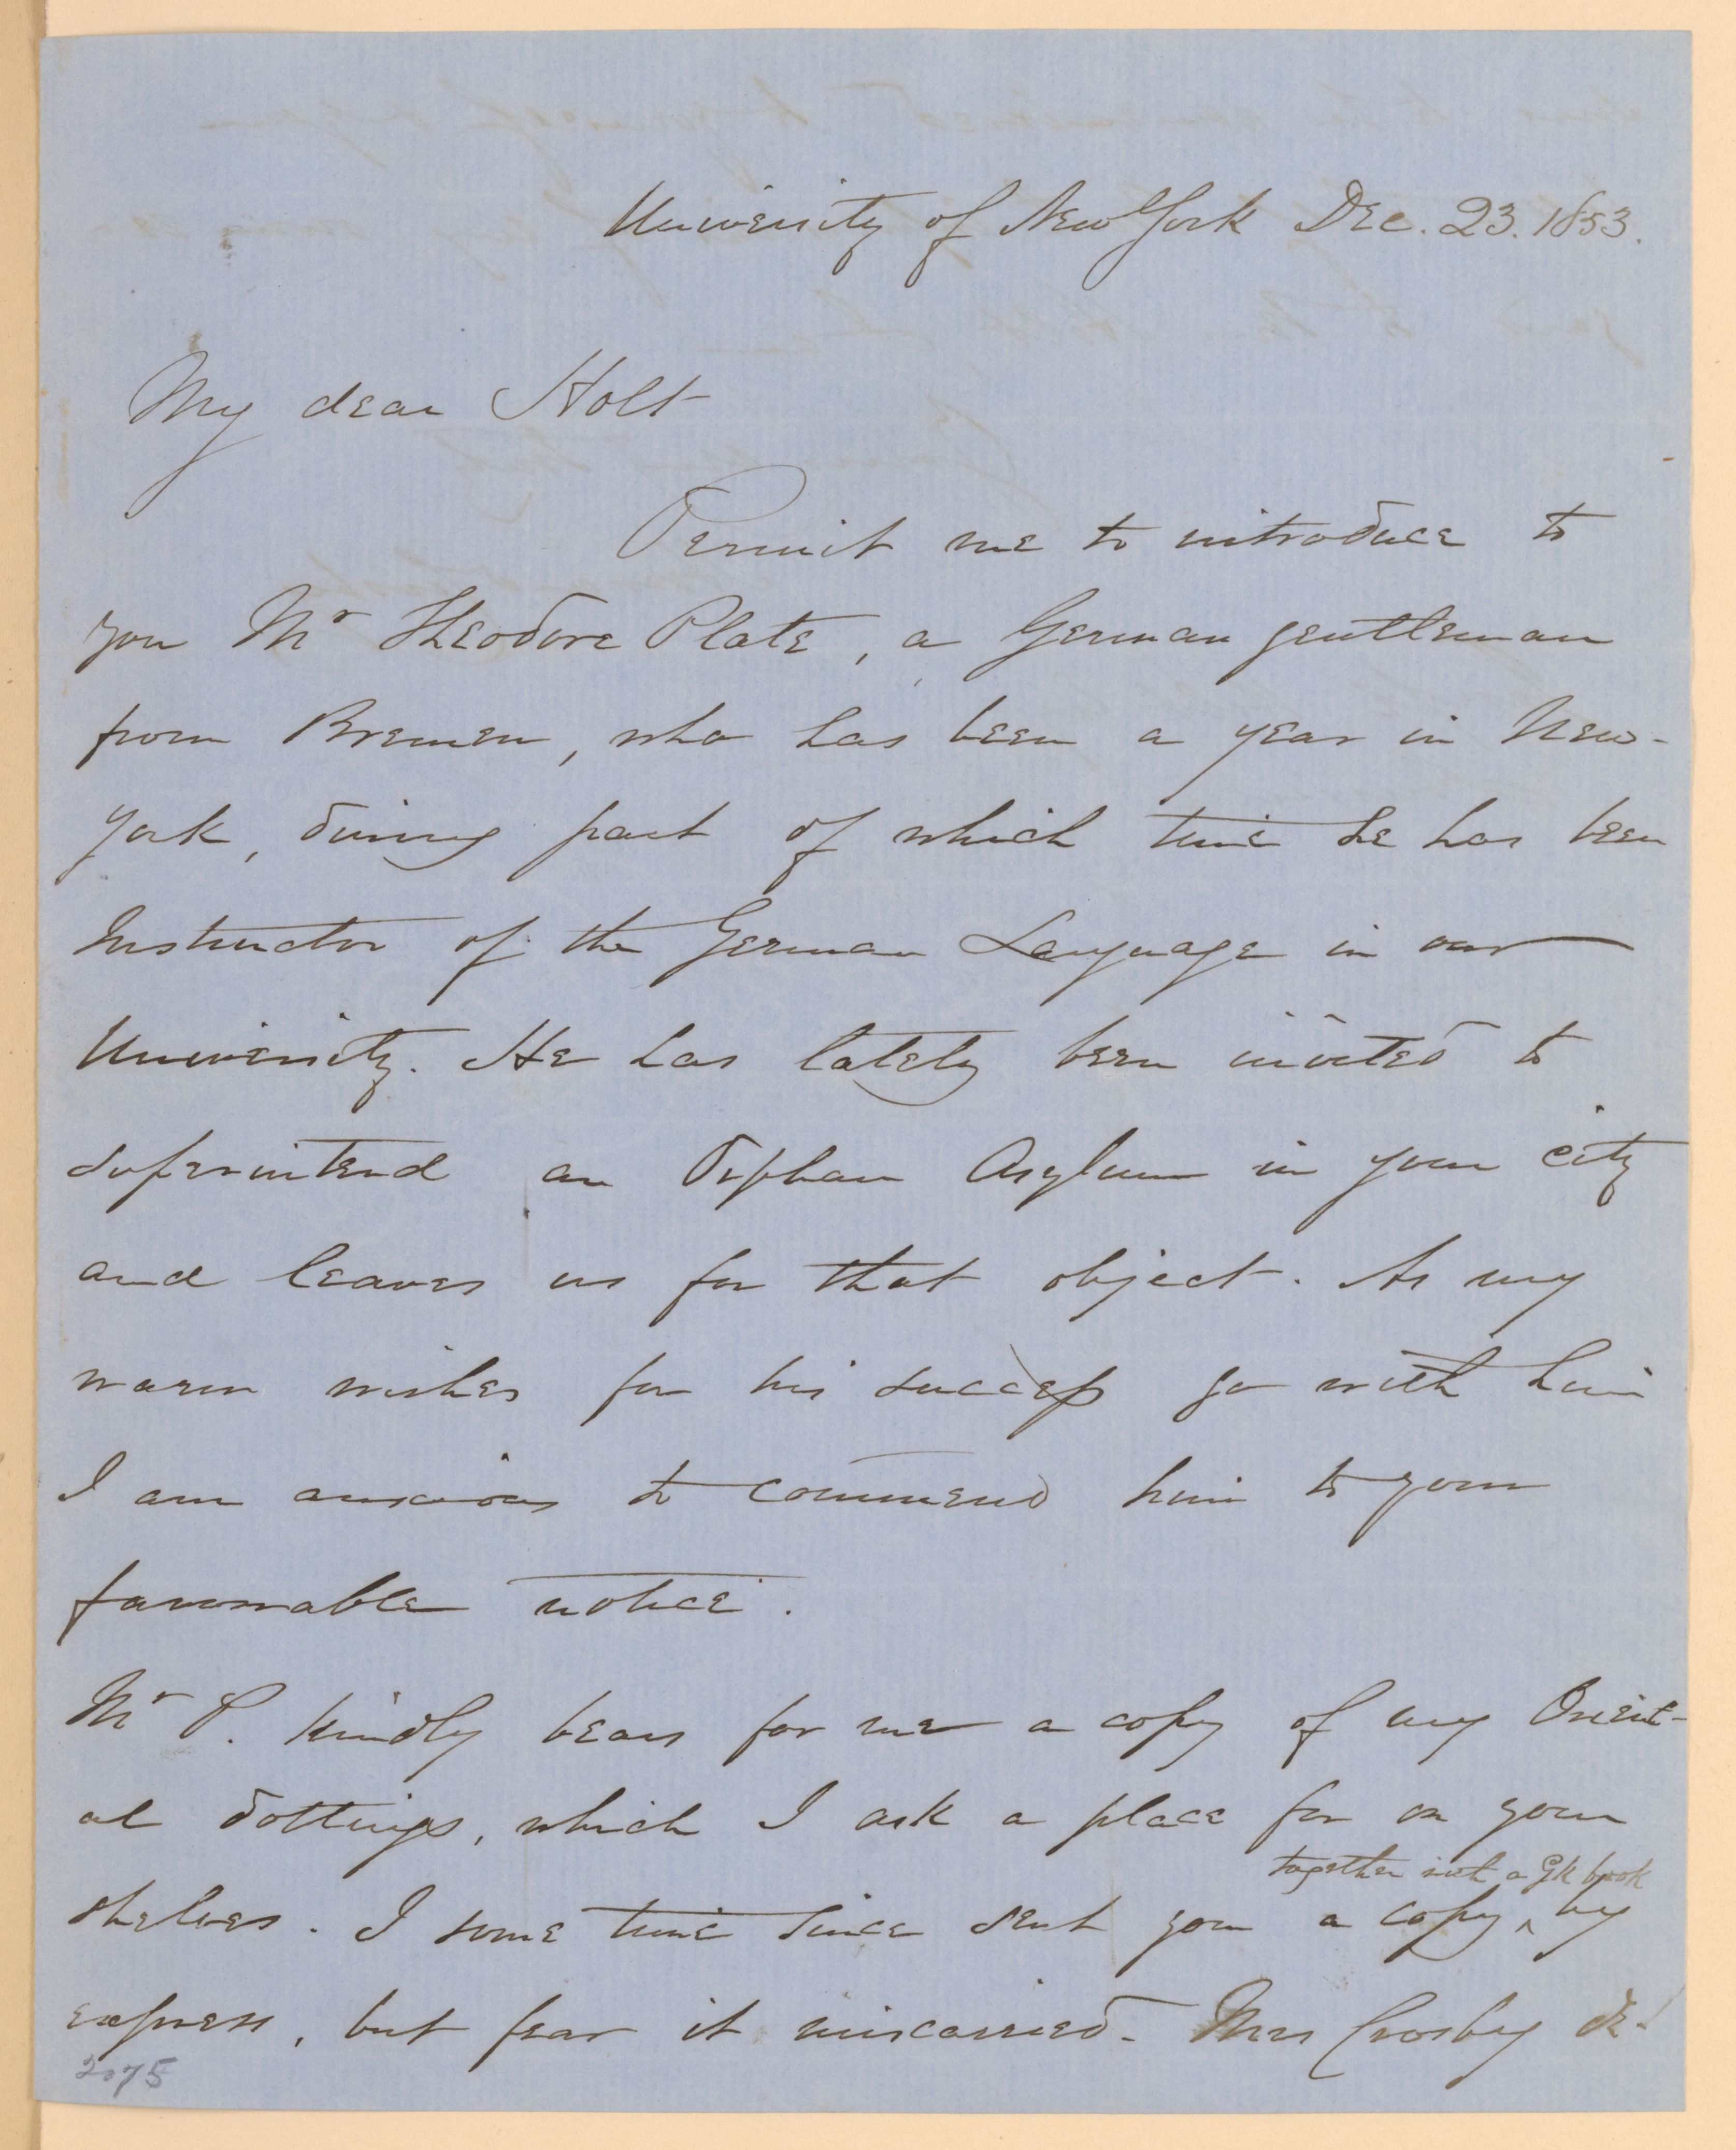 University of New York Dec. 23. 1853.
My dear Holt
Permit me to introduce to
you Mr Theodore Plate, a German gentleman
from Bremen, who has been a year in New-
York, during part of which time he has been
Instructor of the German Language in our
University. He has lately been invited to
superintend an Orphan Asylum in your city
and leaves us for that object. As my
warm wishes for his success go with him
I am anxious to commend him to your
favorable notice.
Mr P. kindly bears for me a copy of my Orient-
al dottings, which I ask a place for on your
together with a Gk book
shelves. I some time since sent you a copy ^ by
express, but fear it miscarried. Mrs Crosby de-
2075